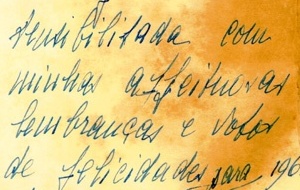 sensibilisada com
minhas affeituosas
lembranças e votos
de felicidades para 196